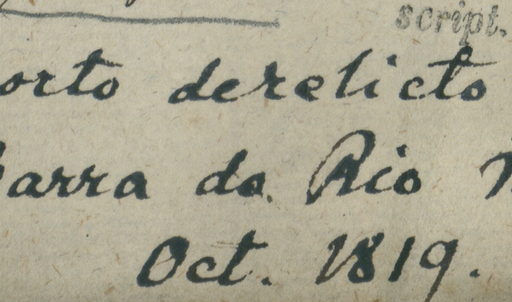 script.
orto derelicto
Barra do Rio
Oct. 1819.